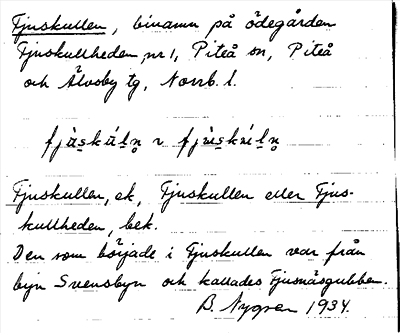 Fjuskullen, binamn på ödegården
Fjuskullheden nr 1, Piteå sn, Piteå
och Älvsby tg, Norrb. l.
Fjuskullen, ek, Fjuskullen eller Fjus-
kullheden, bek.
Den som började i Fjuskullen var från
byn Svensbyn och kallades Fjusnäsgubben.
B. Nygren 1934.